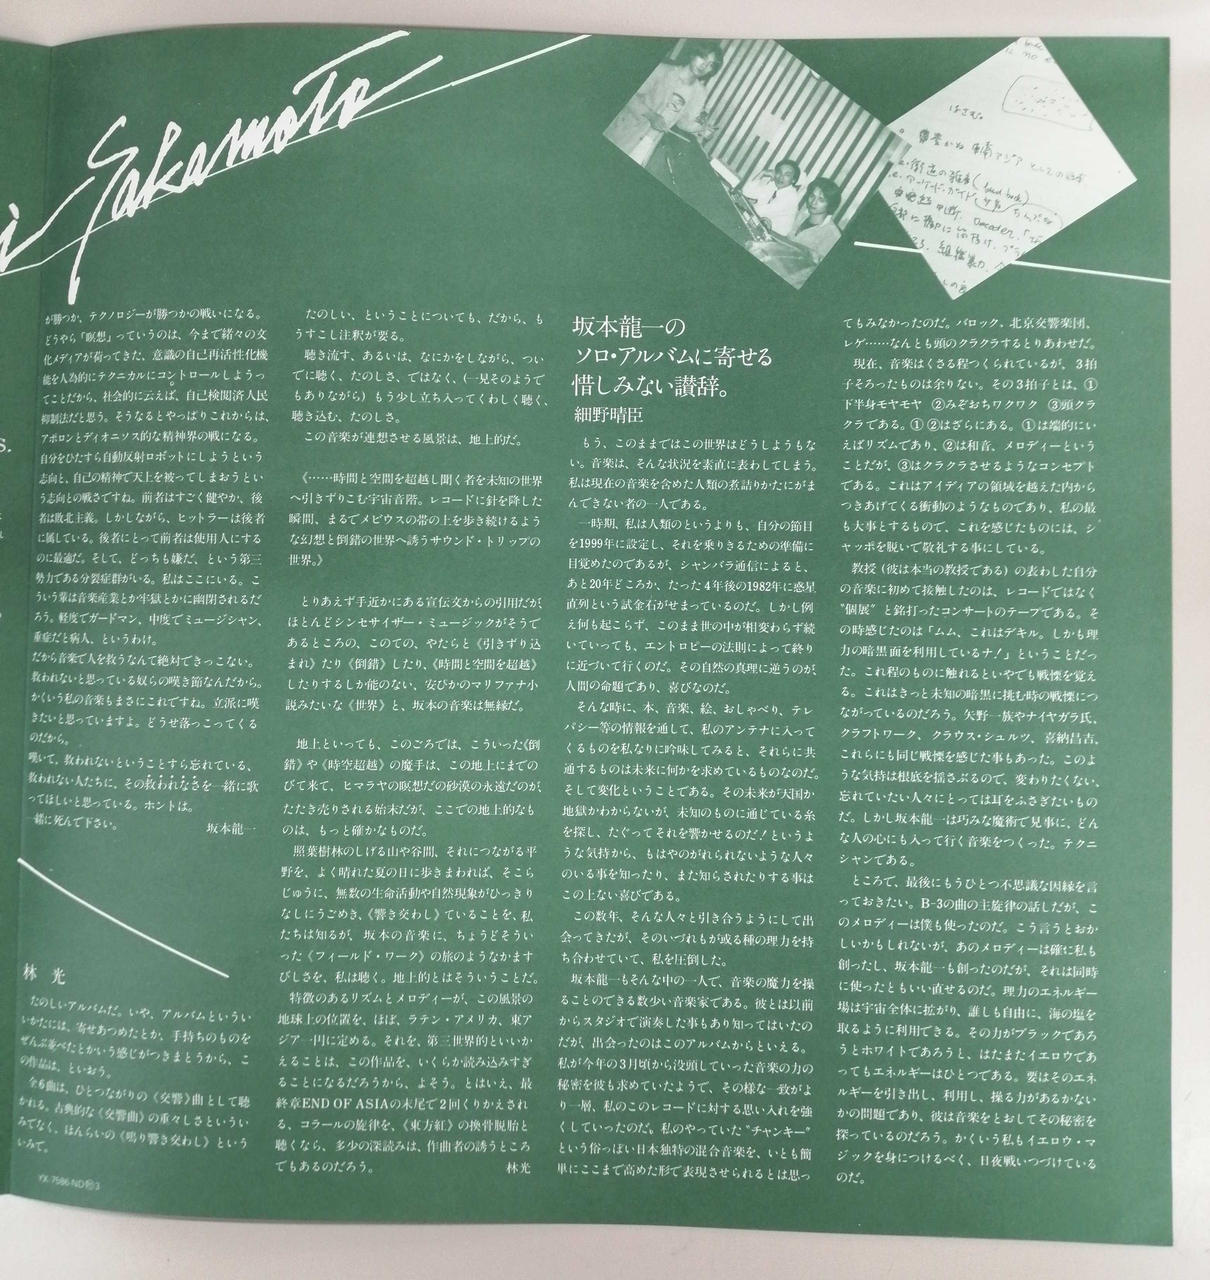 i Sakamoto
はさむ。
が勝つか、テクノロジーが勝つかの戦いになる。
どうやら「瞑想」っていうのは、今まで諸々の文
化メディアが荷ってきた、意識の自己再活性化機
能を人為的にテクニカルにコントロールしようっ
てことだから、社会的に云えば、自己検閲済人民
抑制法だと思う。そうなるとやっぱりこれからは、
アポロンとディオニソス的な精神界の戦になる。
自分をひたすら自動反射ロボットにしようという
志向と、自己の精神で天上を被ってしまおうとい
う志向との戦さですね。前者はすごく健やか、後
者は敗北主義。しかしながら、ヒットラーは後者
に属している。後者にとって前者は使用人にする
のに最適だ。そして、どっちも嫌だ、という第三
勢力である分裂症群がいる。私はここにいる。こ
ういう輩は音楽産業とか牢獄とかに幽閉されるだ
ろう。軽度でガードマン、中度でミュージシャン、
重症だと病人、というわけ。
だから音楽で人を救うなんて絶対できっこない。
救われないと思っている奴らの嘆き節なんだから。
かくいう私の音楽もまさにこれですね。立派に嘆
きたいと思っていますよ。どうせ落っこってくる
のだから。
嘆いて、救われないということすら忘れている、
救われない人たちに、その救われなさを一緒に歌
ってほしいと思っている。ホントは。
一緒に死んで下さい。
坂本龍一
林 光
たのしいアルバムだ。いや、アルバムというい
いかたには、寄せあつめたとか、手持ちのものを
ぜんぶ並べたとかいう感じがつきまとうから、こ
の作品は、といおう。
全6曲は、ひとつながりの《交響》曲として聴
かれる。古典的な《交響曲》の重々しさというい
みでなく、ほんらいの《鳴り響き交わし》という
いみで。
YX-7586-ND㊞3
たのしい、ということについても、だから、も
うすこし注釈が要る。
聴き流す、あるいは、なにかをしながら、つい
でに聴く、たのしさ、ではなく、(一見そのようで
もありながら) もう少し立ち入ってくわしく聴く、
聴き込む、たのしさ。
この音楽が連想させる風景は、地上的だ。
《……時間と空間を超越し聞く者を未知の世界
へ引きずりこむ宇宙音階。レコードに針を降した
瞬間、まるでメビウスの帯の上を歩き続けるよう
な幻想と倒錯の世界へ誘うサウンド・トリップの
世界。》
とりあえず手近かにある宣伝文からの引用だが、
ほとんどシンセサイザー・ミュージックがそうで
あるところの、このての、やたらと《引きずり込
まれ》たり《倒錯》したり、《時間と空間を超越》
したりするしか能のない、安ぴかのマリファナ小
説みたいな《世界》と、坂本の音楽は無縁だ。
地上といっても、このごろでは、こういった《倒
錯》や《時空超越》の魔手は、この地上にまでの
びて来て、ヒマラヤの瞑想だの砂漠の永遠だのが、
たたき売りされる始末だが、ここでの地上的なも
のは、もっと確かなものだ。
照葉樹林のしげる山や谷間、それにつながる平
野を、よく晴れた夏の日に歩きまわれば、そこら
じゅうに、無数の生命活動や自然現象がひっきり
なしにうごめき、《響き交わし》ていることを、私
たちは知るが、坂本の音楽に、ちょうどそうい
った《フィールド・ワーク》の旅のようなかます
びしさを、私は聴く。地上的とはそういうことだ。
特徴のあるリズムとメロディーが、この風景の
地球上の位置を、ほぼ、ラテン・アメリカ、東ア
ジア一円に定める。それを、第三世界的といいか
えることは、この作品を、いくらか読み込みすぎ
ることになるだろうから、よそう。とはいえ、最
終章END OF ASIAの末尾で2回くりかえされ
る、コラールの旋律を、《東方紅》の換骨脱胎と
聴くなら、多少の深読みは、作曲者の誘うところ
でもあるのだろう。
林光
坂本龍一の
ソロ・アルバムに寄せる
惜しみない讃辞。
細野晴臣
もう、このままではこの世界はどうしようもな
い。音楽は、そんな状況を素直に表わしてしまう。
私は現在の音楽を含めた人類の煮詰りかたにがま
んできない者の一人である。
一時期、私は人類のというよりも、自分の節目
を1999年に設定し、それを乗りきるための準備に
目覚めたのであるが、シャンバラ通信によると、
あと20年どころか、たった4年後の1982年に惑星
直列という試金石がせまっているのだ。しかし例
え何も起こらず、このまま世の中が相変わらず続
いていっても、エントロピーの法則によって終り
に近づいて行くのだ。その自然の真理に逆うのが、
人間の命題であり、喜びなのだ。
そんな時に、本、音楽、絵、おしゃべり、テレ
パシー等の情報を通して、私のアンテナに入って
くるものを私なりに吟味してみると、それらに共
通するものは未来に何かを求めているものなのだ。
そして変化ということである。その未来が天国か
地獄かわからないが、未知のものに通じている糸
を探し、たぐってそれを響かせるのだ！というよ
うな気持から、もはやのがれられないような人々
のいる事を知ったり、また知らされたりする事は
この上ない喜びである。
この数年、そんな人々と引き合うようにして出
会ってきたが、そのいづれもが或る種の理力を持
ち合わせていて、私を圧倒した。
坂本龍一もそんな中の一人で、音楽の魔力を操
ることのできる数少い音楽家である。彼とは以前
からスタジオで演奏した事もあり知ってはいたの
だが、出会ったのはこのアルバムからといえる。
私が今年の3月頃から没頭していった音楽の力の
秘密を彼も求めていたようで、その様な一致がよ
り一層、私のこのレコードに対する思い入れを強
くしていったのだ。私のやっていた"チャンキー"
という俗っぽい日本独特の混合音楽を、いとも簡
単にここまで高めた形で表現させられるとは思っ
てもみなかったのだ。バロック、北京交響楽団、
レゲ……なんとも頭のクラクラするとりあわせだ。
現在、音楽はくさる程つくられているが、3拍
子そろったものは余りない。その3拍子とは、①
下半身モヤモヤ ②みぞおちワクワク ③頭クラ
クラである。①②はざらにある。①は端的にい
えばリズムであり、②は和音、メロディーという
ことだが、③はクラクラさせるようなコンセプト
である。これはアイディアの領域を越えた内から
つきあげてくる衝動のようなものであり、私の最
も大事とするもので、これを感じたものには、シ
ャッポを脱いで敬礼する事にしている。
教授 (彼は本当の教授である) の表わした自分
の音楽に初めて接触したのは、レコードではなく
"個展" と銘打ったコンサートのテープである。そ
の時感じたのは「ムム、これはデキル。しかも理
力の暗黒面を利用しているナ！」ということだっ
た。これ程のものに触れるといやでも戦慄を覚え
る。これはきっと未知の暗黒に挑む時の戦慄につ
ながっているのだろう。矢野一族やナイヤガラ氏、
クラフトワーク、クラウス・シュルツ、喜納昌吉、
これらにも同じ戦慄を感じた事もあった。このよ
うな気持は根底を揺さぶるので、変わりたくない、
忘れていたい人々にとっては耳をふさぎたいもの
だ。しかし坂本龍一は巧みな魔術で見事に、どん
な人の心にも入って行く音楽をつくった。テクニ
シャンである。
ところで、最後にもうひとつ不思議な因縁を言
っておきたい。B-3の曲の主旋律の話しだが、こ
のメロディーは僕も使ったのだ。こう言うとおか
しいかもしれないが、あのメロディーは確に私も
創ったし、坂本龍一も創ったのだが、それは同時
に使ったともいい直せるのだ。理力のエネルギー
場は宇宙全体に拡がり、誰しも自由に、海の塩を
取るように利用できる。その力がブラックであろ
うとホワイトであろうと、はたまたイエロウであ
ってもエネルギーはひとつである。要はそのエネ
ルギーを引き出し、利用し、操る力があるかない
かの問題であり、彼は音楽をとおしてその秘密を
探っているのだろう。かくいう私もイエロウ・マ
ジックを身につけるべく、日夜戦いつづけている
のだ。